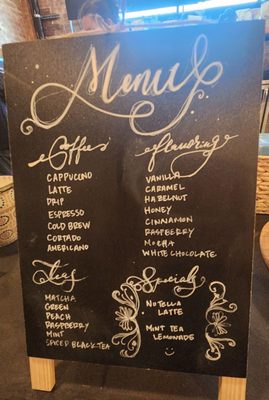 Menu
Coffees
CAPPUCINO
LATTE
DRIP
ESPRESSO
COLD BREW
CORTADO
AMERICANO
Flavoring
VANILLA
CARAMEL
HAZELNUT
HONEY
CINNAMON
RASPBERRY
MOCHA
WHITE CHOCOLATE
Teas
MATCHA
GREEN
PEACH
RASPBERRY
MINT
SPICED BLACK TEA
Specials
NUTELLA
LATTE
MINT TEA
LEMONADE